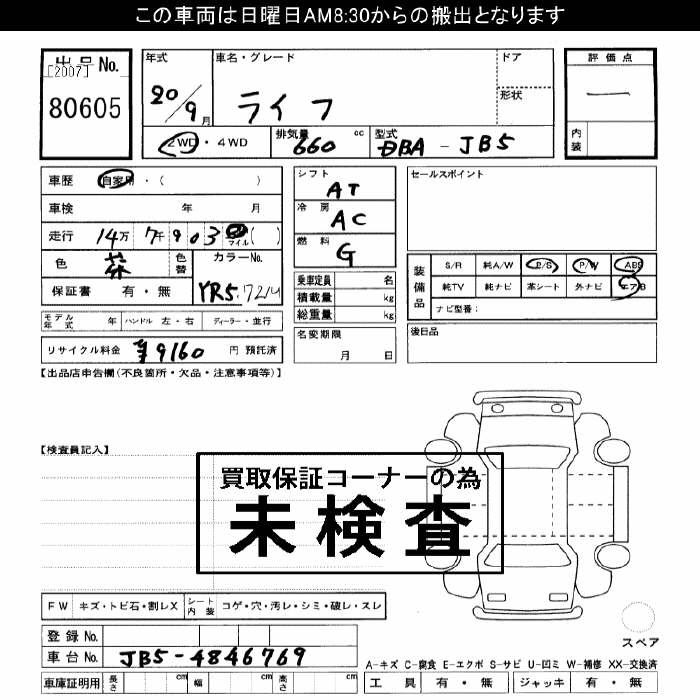 この車両は日曜日AM8:30からの搬出となります
出品No.
[2007]
80605
年式
20/9月
車名・グレード
ライフ
ドア
形状
評価点
一
内装
2WD・4WD
排気量 660 cc
型式 DBA - JB5
車歴 自家用・( )
車検 年 月
走行 14万 7千 903 マイル( )
色 茶
色替
カラーNo.
保証書 有・無
YR5
シフト AT
冷房 AC
燃料 G
乗車定員 名
積載量 kg
総重量 kg
セールスポイント
装備品
S/R 純A/W P/S P/W ABS
純TV 純ナビ 革シート 外ナビ エアB
ナビ型番:
モデル年式 年 ハンドル 左・右 ディーラー・並行
リサイクル料金 ¥9160 円 預託済
名変期限
月 日
後日品
【出品店申告欄(不良箇所・欠品・注意事項等)】
【検査員記入】
買取保証コーナーの為
未検査
FW キズ・トビ石・割レX シート内装 コゲ・穴・汚レ・シミ・破レ・スレ
登録No.
車台No. JB5-4846769
車庫証明用 長さ cm 幅 cm 高さ cm
スペア
A-キズ C-腐食 E-エクボ S-サビ U-凹ミ W-補修 XX-交換済
工具 有・無 ジャッキ 有・無